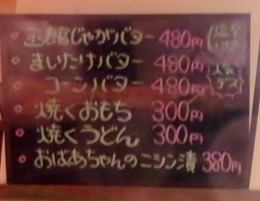 じゃがバター 480円
まいたけバター 480円
コーンバター 480円
焼くおもち 300円
焼くうどん 300円
おばあちゃんのニシン漬 380円